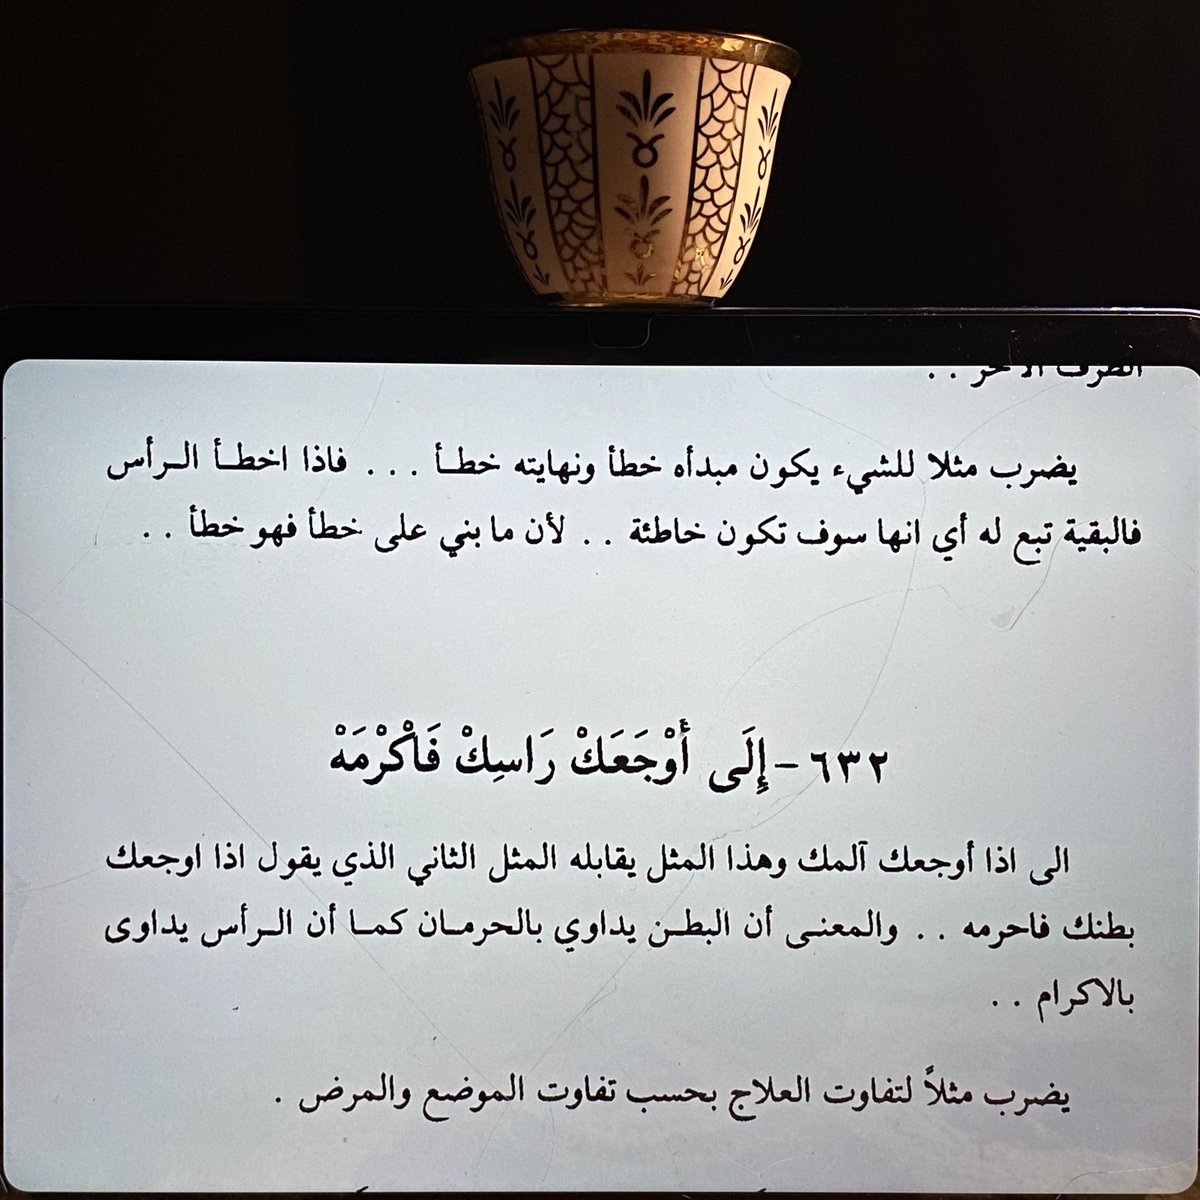 الطرف الآخر . .
يضرب مثلا للشيء يكون مبدأه خطأ ونهايته خطـأ . . . فاذا اخطـأ الـرأس
فالبقية تبع له أي انها سوف تكون خاطئة . . لأن ما بني على خطأ فهو خطأ . .
٦٣٢ - إِلَى أَوْجَعَكْ رَاسِكْ فَاكْرْمَهْ
الى اذا أوجعك آلمك وهذا المثل يقابله المثل الثاني الذي يقول اذا اوجعك
بطنك فاحرمه . . والمعنـى أن البطـن يداوي بالحرمـان كمـا أن الـرأس يداوى
بالاكرام . .
يضرب مثلاً لتفاوت العلاج بحسب تفاوت الموضع والمرض .